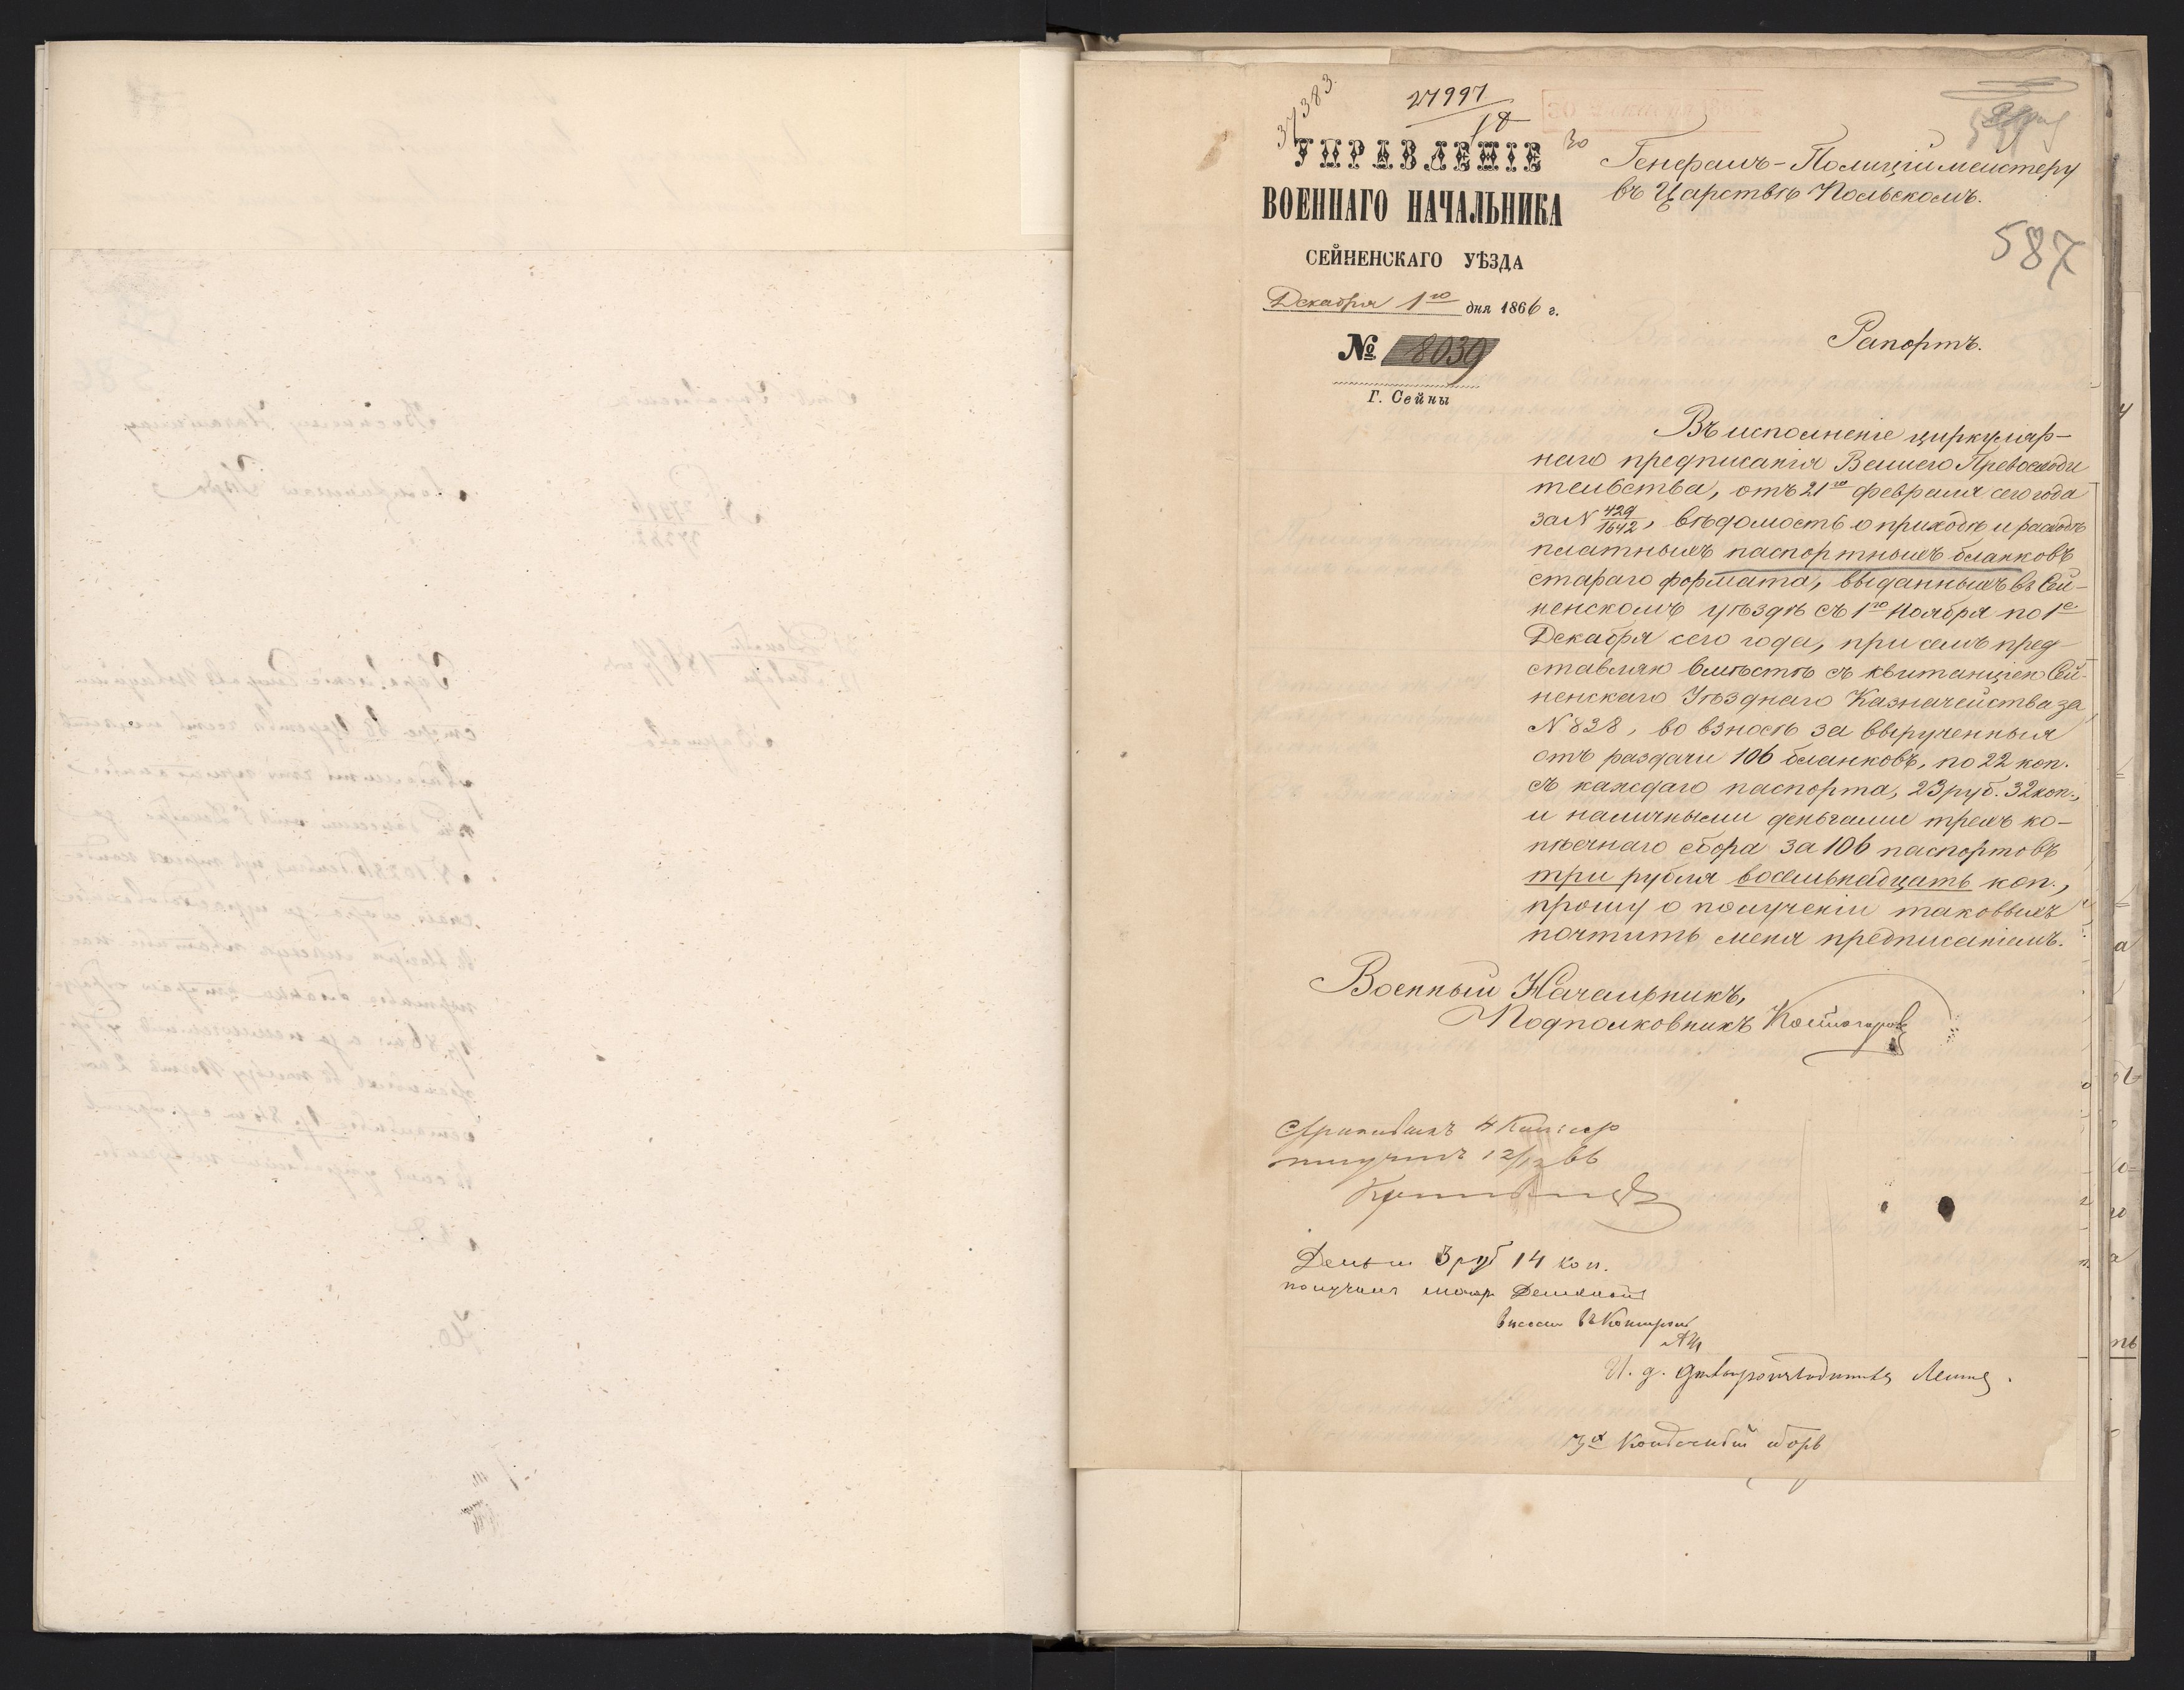 37383.
27997
18
УПРАВЛЕНІЕ
ВОЕННАГО НАЧАЛЬНИКА
СЕЙНЕНСКАГО УѢЗДА
Декабря 1го дня 1866 г.
№ 8039
Г. Сейны
Генералъ-Полиціймейстеру
въ Царствѣ Польскомъ.
587
Рапортъ.
Въ исполненіе циркуляр-
наго предписанія Вашего Превосходи
тельства, отъ 21го февраля сего года
за N 429/1642, вѣдомость о приходѣ и расходѣ
платныхъ паспортныхъ бланковъ
стараго формата, выданныхъ въ Сей-
ненскомъ уѣздѣ съ 1го Ноября по 1е
Декабря сего года, при семъ пред-
ставляю вмѣстѣ съ квитанціею Сей-
ненскаго Уѣзднаго Казначейства за
N 838, во взносѣ за вырученныя
отъ раздачи 106 бланковъ, по 22 коп.
съ каждаго паспорта, 23 руб. 32 коп.,
и наличными деньгами трехъ ко-
пѣечнаго сбора за 106 паспортовъ
три рубля восемьнадцать коп.,
прошу о полученіи таковыхъ
почтить меня предписаніемъ.
Военный Начальникъ,
Подполковникъ
получилъ 12/12 66
Деньги 3 руб 14 коп.
получилъ
И. д.
сборъ